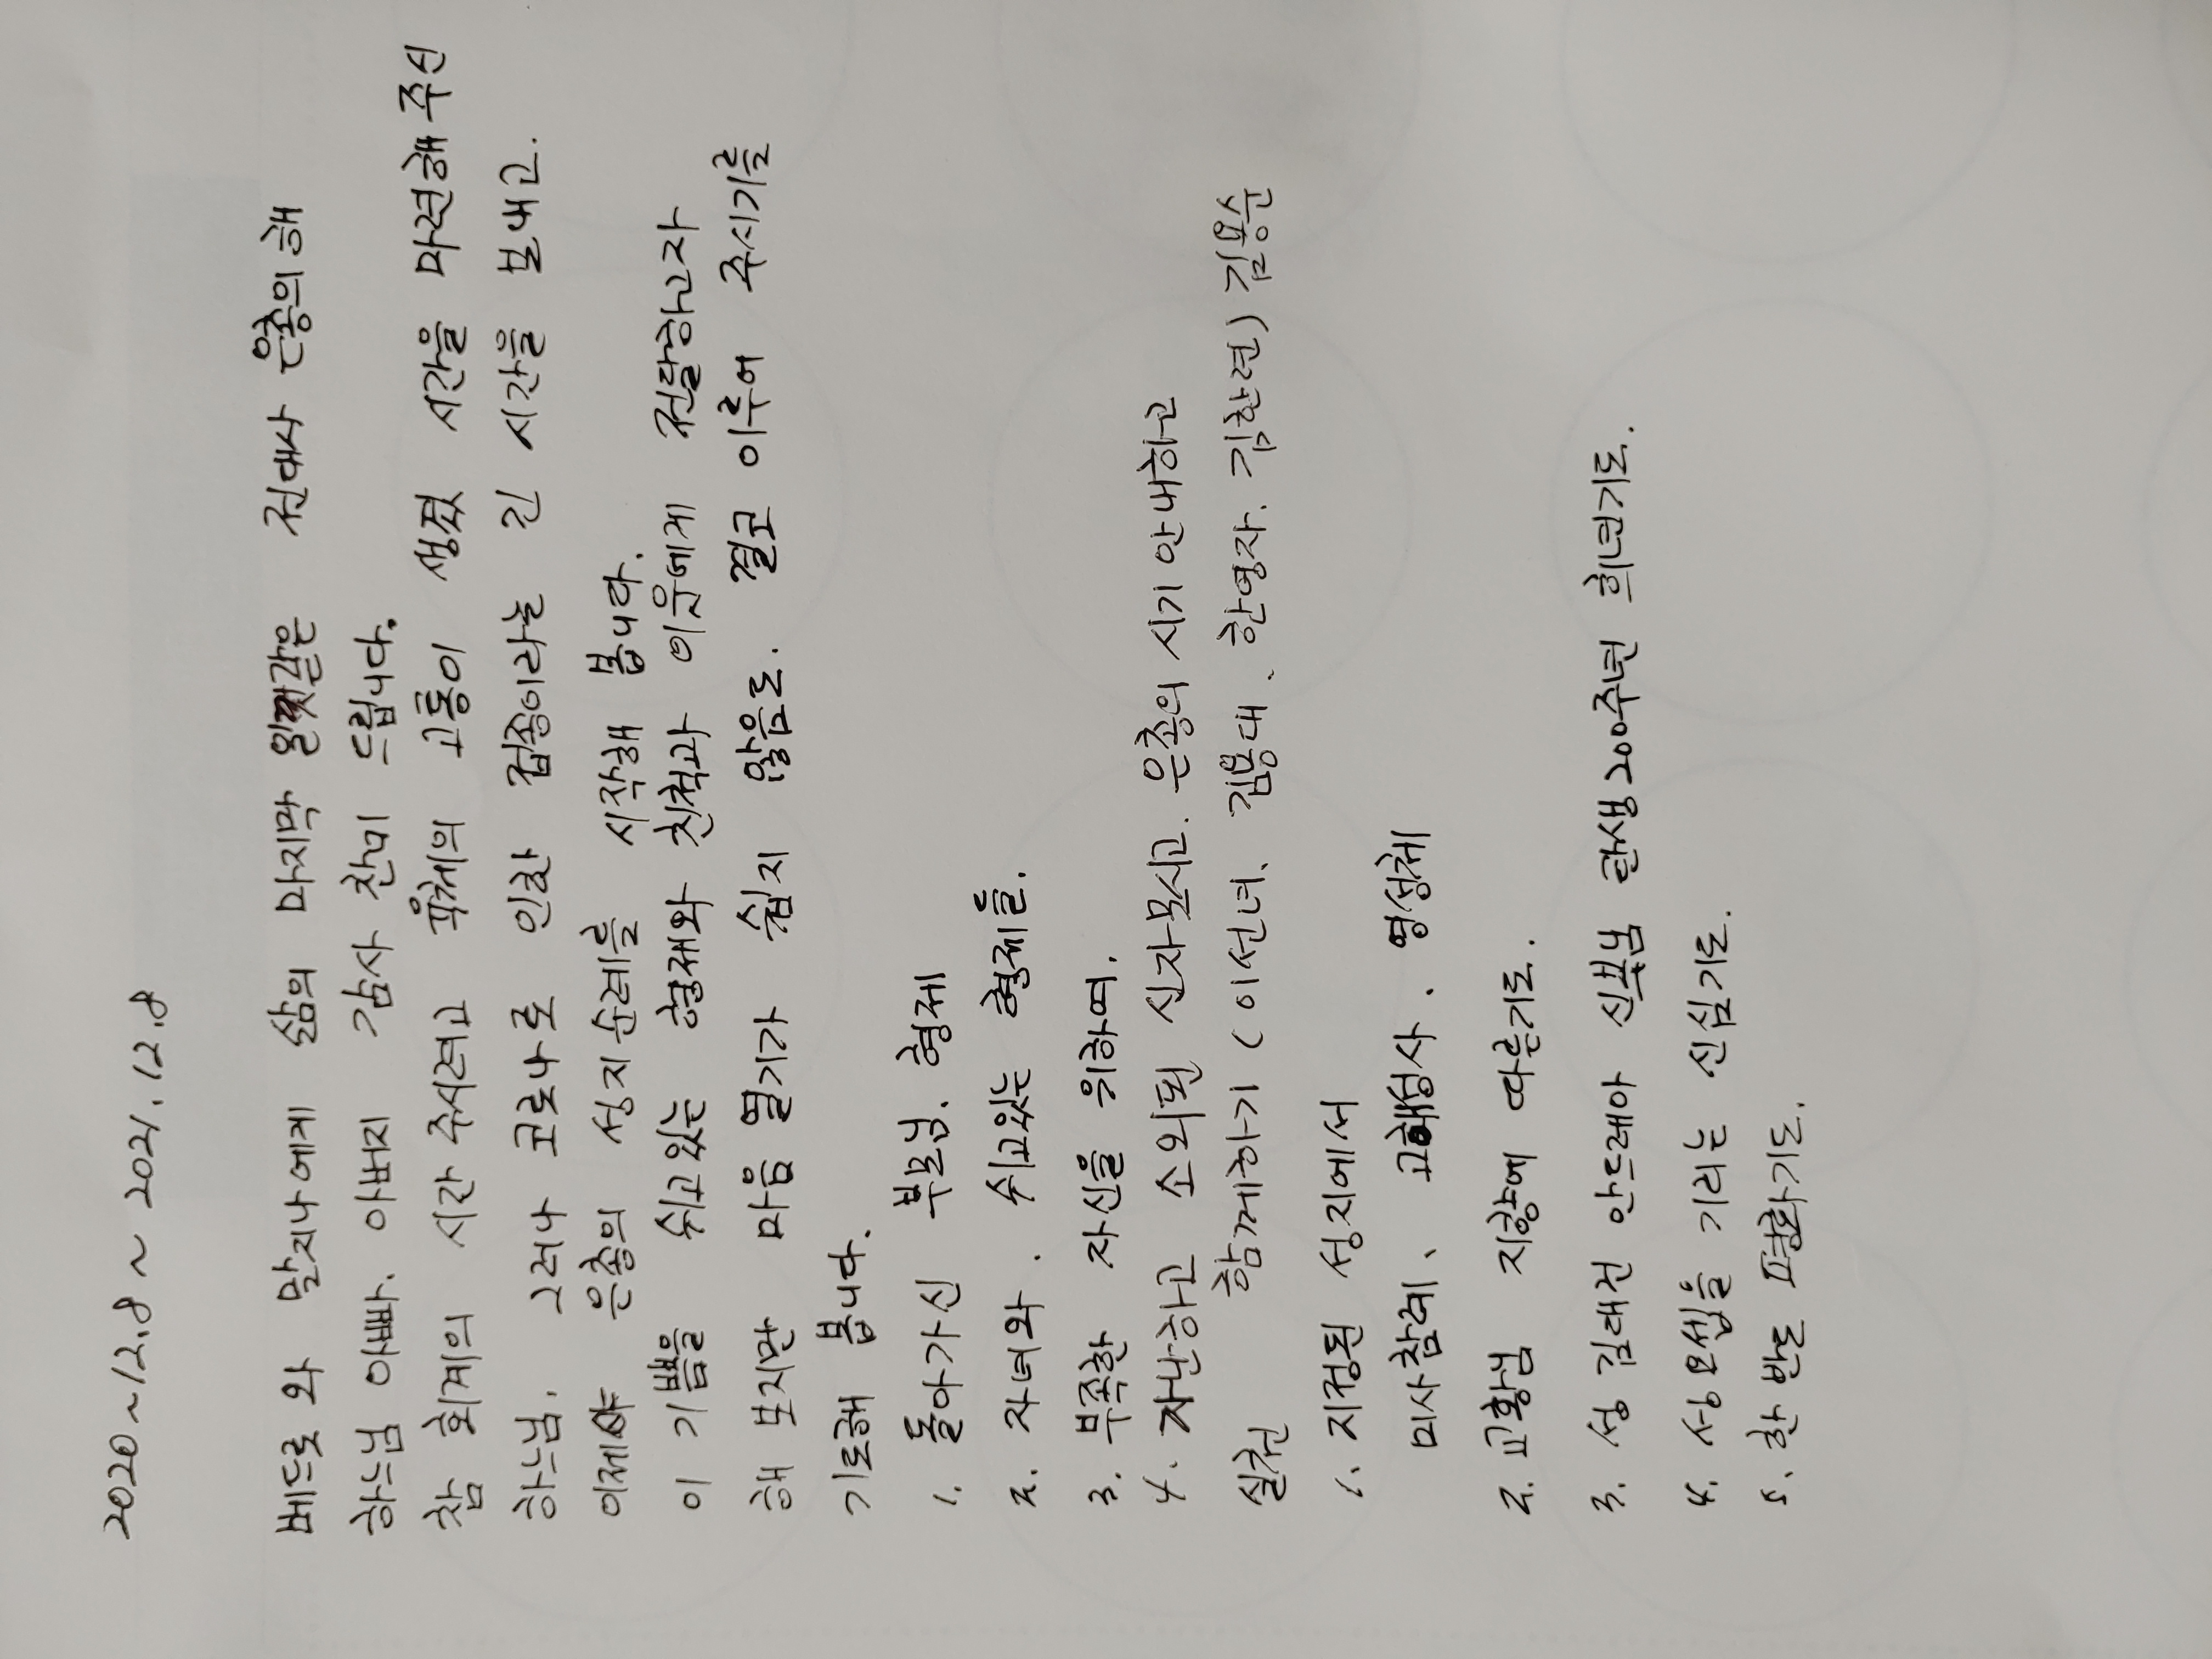 2020~12.8 ~ 2021.12.8
베드로 와 말지나에게 삶의 마지막 일것같은 전대사 은총의 해
하느님 아빠. 아버지 감사 찬미 드립니다.
참 회계의 시간 주시려고 육체의 고통이 생겼 시간을 마련해 주신
하느님. 그러나 코로나로 인한 접종이라는 긴 시간을 보내고.
이제야 은총의 성지순례를 시작해 봅니다.
이 기쁨을 쉬고있는 형제와 친척과 이웃에게 전달하고자
해 보지만 마음 열기가 쉽지 않음도. 결코 이루어 주시기를
기도해 봅니다.
1. 돌아가신 부모님. 형제
2. 자녀와. 쉬고있는 형제들.
3. 부족한 자신을 위하여.
4. 가난하고 소외된 신자모시고. 은총의 시기 안내하고
함께하기 (이선녀. 김용대. 한영자. 김한련) 김용순
실천
1. 지정된 성지에서
미사참례, 고해성사. 영성체
2. 교황님 지향에 따른기도.
3. 성 김대건 안드레아 신부님 탄생200주년 희년기도.
4. 성요셉을 기리는 신심기도.
5. 한반도 평화기도.